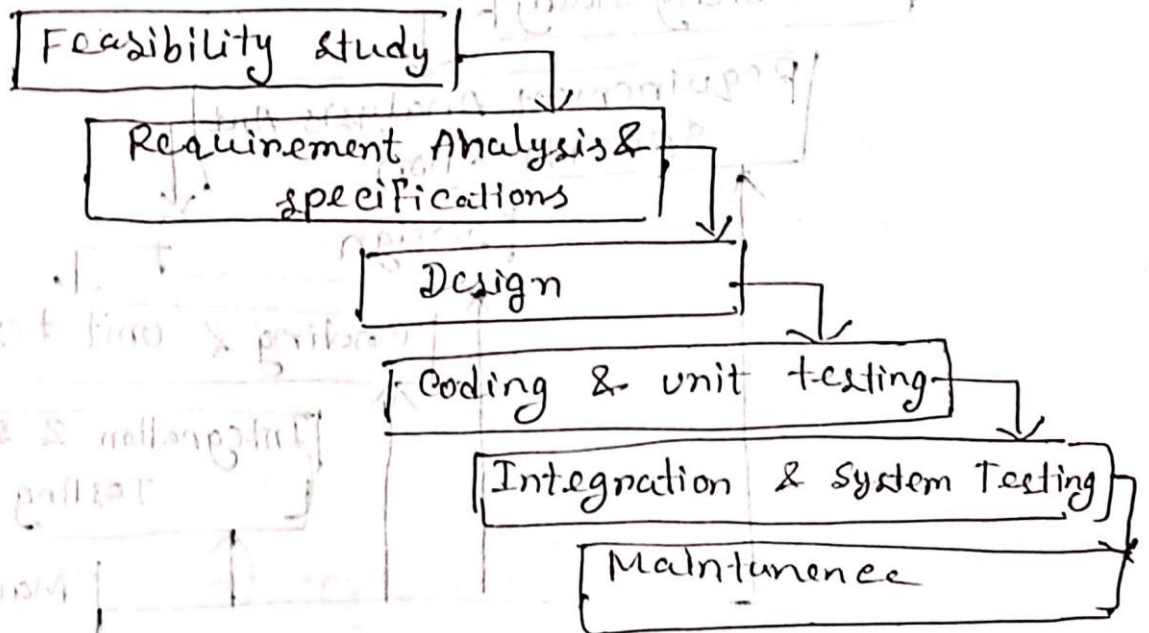 Feasibility study
Requirement Analysis &
specifications
Design
Coding & unit testing
Integration & System Testing
Maintunence